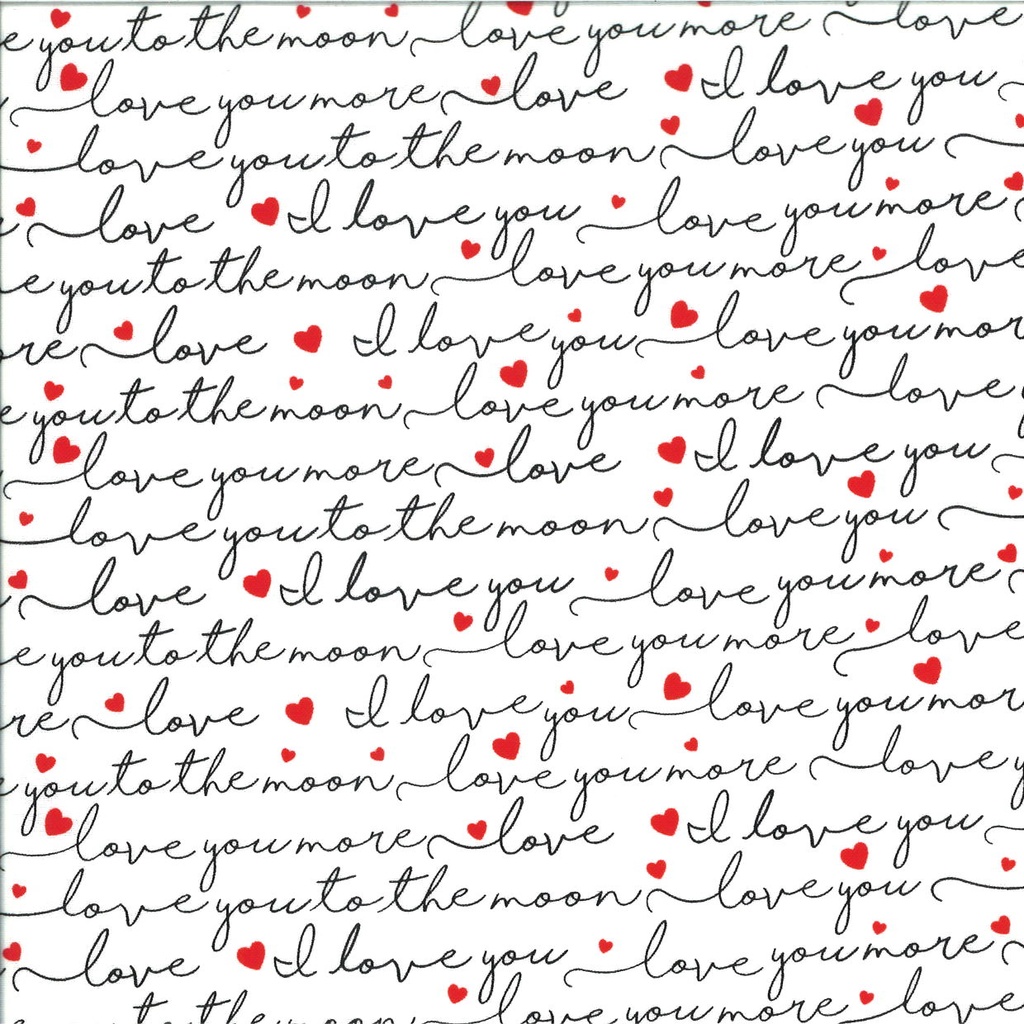 e you to the moon love you more love
love you more love I love you
love you to the moon love you
love I love you love you more
e you to the moon love you more love
ore love I love you love you mor
e you to the moon love you more love y
love you more love I love you
love you to the moon love you
love I love you love you more
e you to the moon love you more love
re love I love you love you mor
e you to the moon love you more love y
love you more love I love you
love you to the moon love you
love I love you love you more
to the moon love you more love